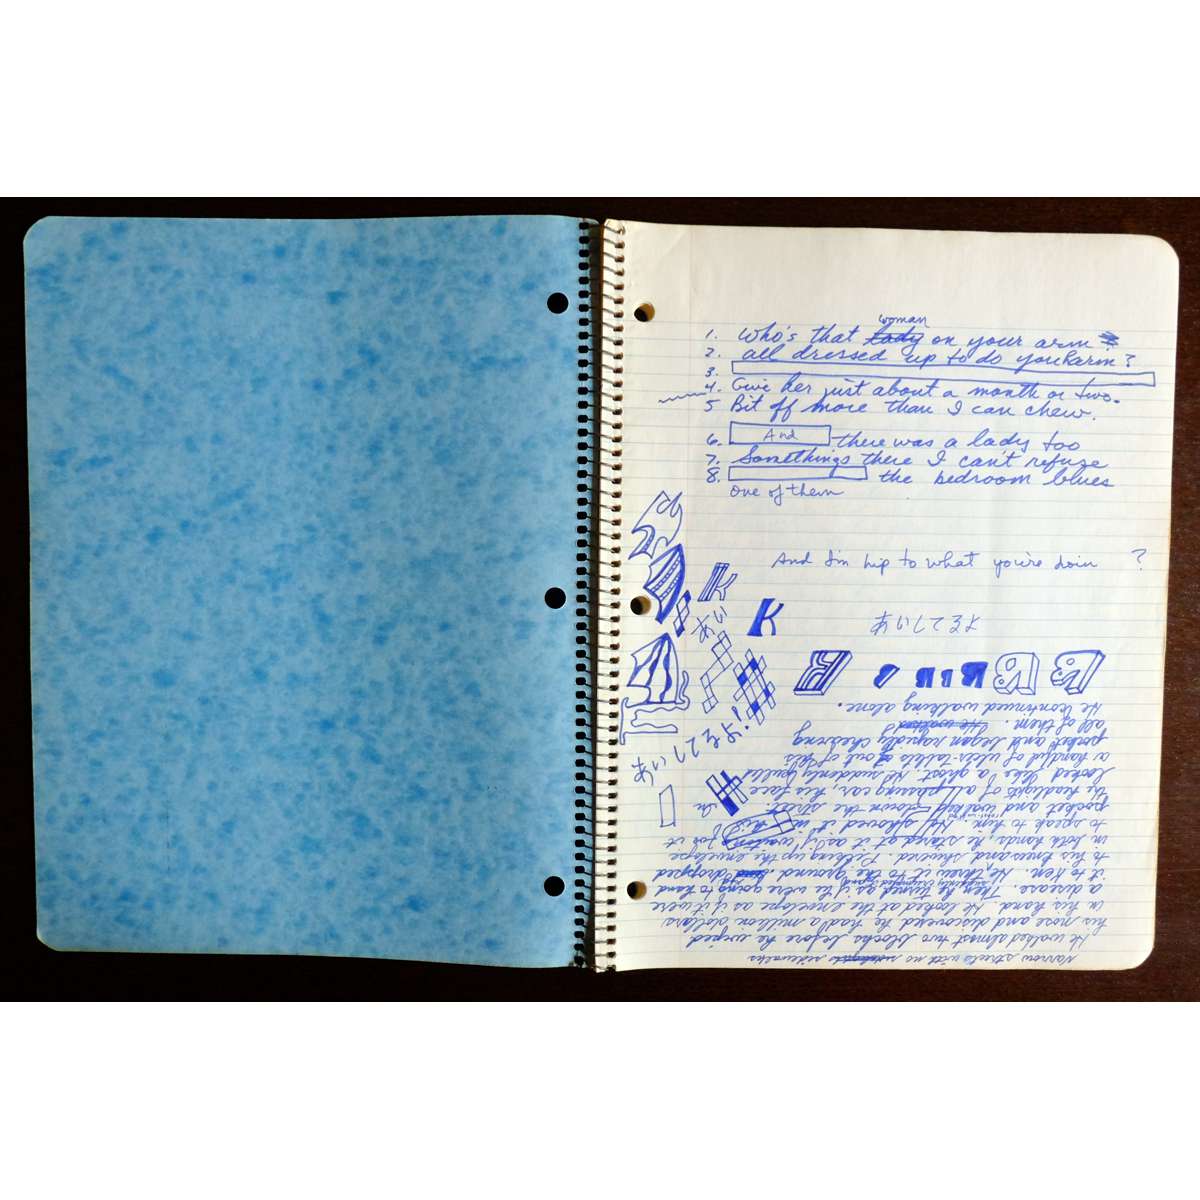 woman
1. Who's that lady on your arm
2. all dressed up to do you harm?
3.
4. Give her just about a month or two.
5 Bit off more than I can chew.
6. And there was a lady too
7. Somethings there I can't refuze
8. the bedroom blues
One of them
And I'm hip to what you're doin ?
K
K
Narrow streets with no sidewalks
He walked almost two blocks before he wiped
his nose and discovered he had a million dollars
in his hand. He looked at the envelope as if it were
a disease. Then he turned as if he were going to hand
it to Ken. He threw it to the ground dropped
to his knees and shivered. Picking up the envelope
in both hands, he stared at it as if waiting for it
to speak to him. He shoved it in his
pocket and walked down the street.
the headlights of a passing car, his face
looked like a ghost. He suddenly pulled
a handful of ulcer tablets out of his
pocket and began rapidly chewing
all of them. He walked
He continued walking alone.